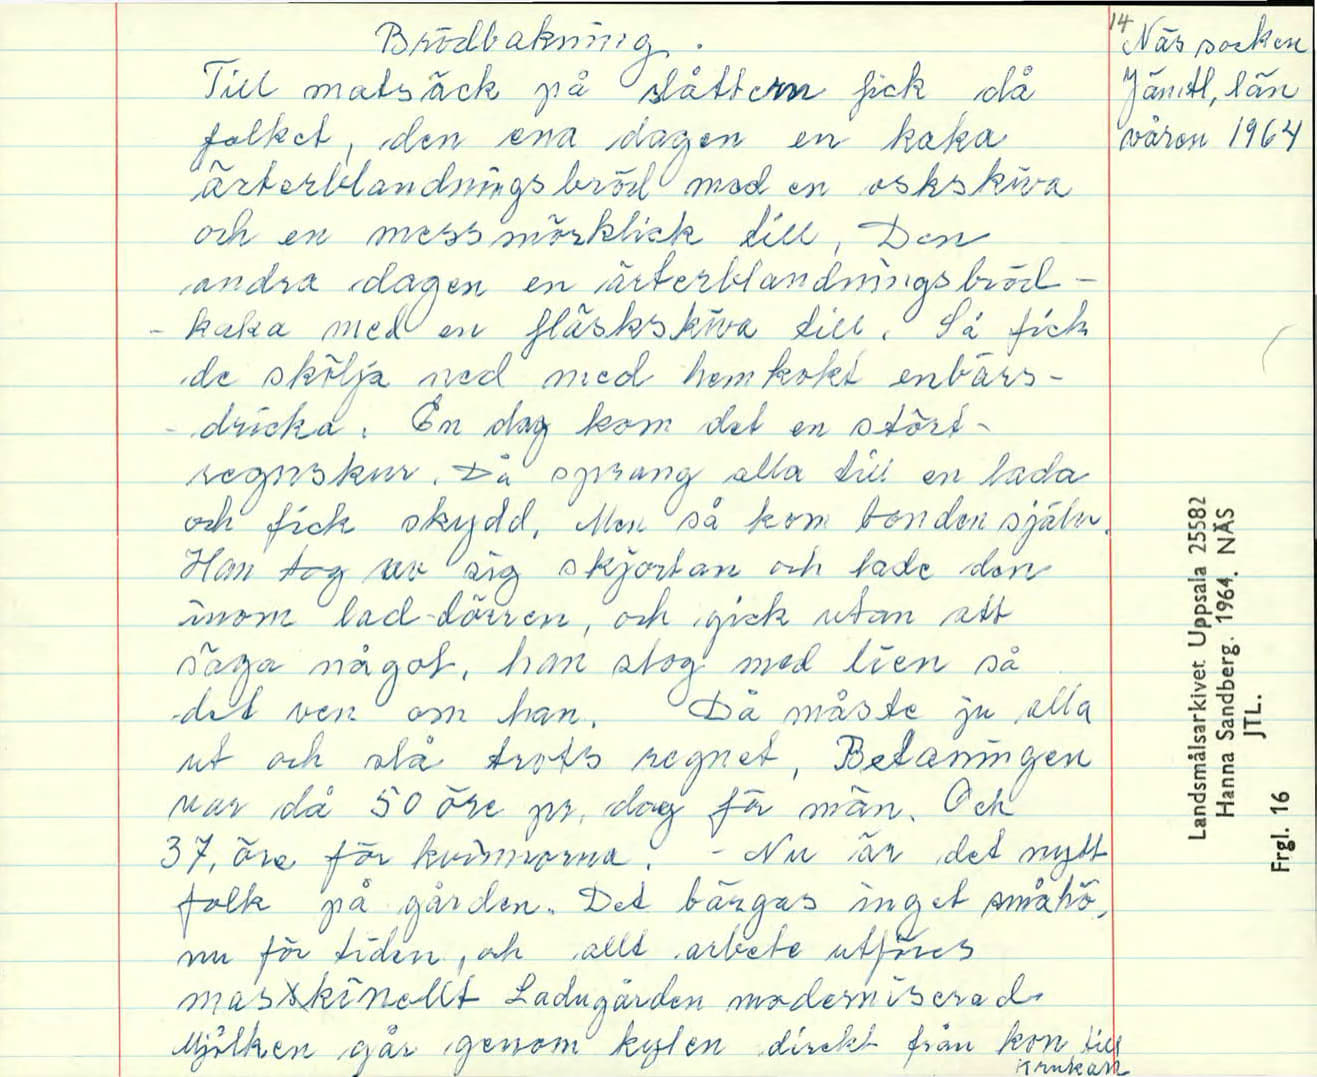 Brödbakning.
Till matsäck på slåttern fick då
folket, den ena dagen en kaka
ärterblandningsbröd med en oskskiva
och en messmörklick till. Den
andra dagen en ärterblandningsbröd-
- kaka med en fläskskiva till. Så fick
de skölja ned med hemkokt enbärs-
- dricka. En dag kom det en stört-
regnskur. Då sprang alla till en lada
och fick skydd. Men så kom bonden själv.
Han tog av sig skjortan och lade den
inom lad-dörren, och gick utan att
säga något, han slog med lien så
det ven om han. Då måste ju alla
ut och slå trots regnet, Betaningen
var då 50 öre pr. dag för män. Och
37, öre för kvinnorna. - Nu är det nytt
folk på gården. Det bärgas inget småhö,
nu för tiden, och allt arbete utföres
maskinellt Ladugården moderniserad.
Mjölken går genom kylen direkt från kon till
krukan
14
Näs socken
Jämtl, län
våren 1964
Landsmålsarkivet Uppsala 25582
Hanna Sandberg. 1964. NÄS
JTL.
Frgl. 16